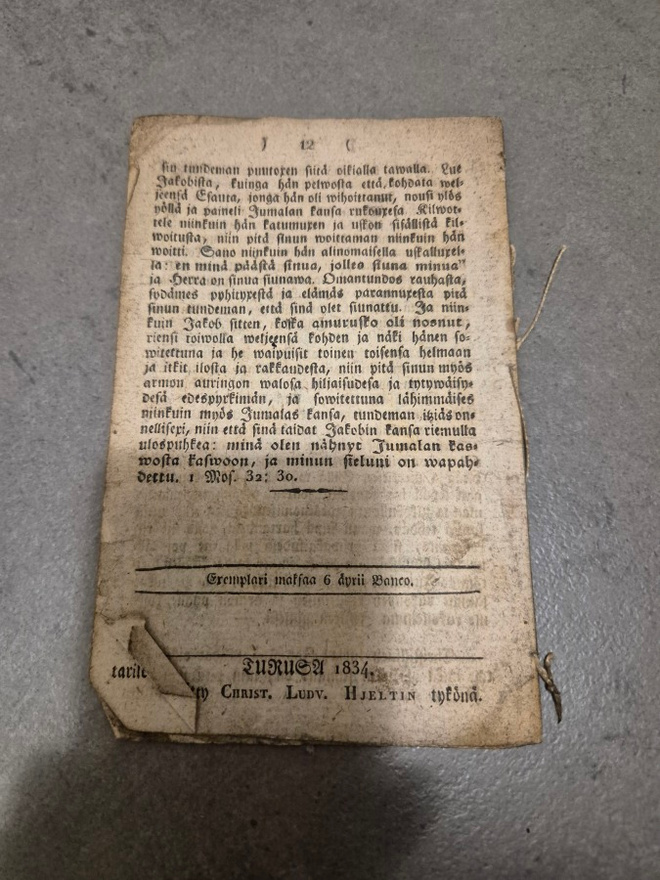 ) 12 (
sin tundeman puutoxen siitä oikialla tawalla. Lue
Jakobista, kuinga hän pelwosta että kohdata wel-
jeensä Esauta, jonga hän oli wihoittanut, nousi ylös
yöllä ja paineli Jumalan kansa rukouxesa. Kilwot-
tele niinkuin hän katumuxen ja uskon sisällistä kil-
woitusta, niin pitä sinun woittaman niinkuin hän
woitti. Sano niinkuin hän alinomaisella uskalluxel-
la: en minä päästä sinua, jolles siuna minua"
ja Herra on sinua siunawa. Omantundos rauhasta,
sydämes pyhityxestä ja elämäs parannuxesta pitä
sinun tundeman, että sinä olet siunattu. Ja niin-
kuin Jakob sitten, koska amurusko oli nosnut,
riensi toiwolla weljeensä kohden ja näki hänen so-
witettuna ja he waipuisit toinen toisensa helmaan
ja itkit ilosta ja rakkaudesta, niin pitä sinun myös
armon auringon walosa hiljaisudesa ja tytywäisy-
desä edespyrkimän, ja sowitettuna lähimmäises
niinkuin myös Jumalas kansa, tundeman itziäs on-
nellisexi, niin että sinä taidat Jakobin kansa riemulla
ulospuhkea: minä olen nähnyt Jumalan kas-
wosta kaswoon, ja minun sieluni on wapah-
dettu. 1 Mos. 32: 30.
Exemplari maksaa 6 äyrii Banco.
TURUSA 1834,
ty CHRIST. LUDV. HJELTIN tykönä.